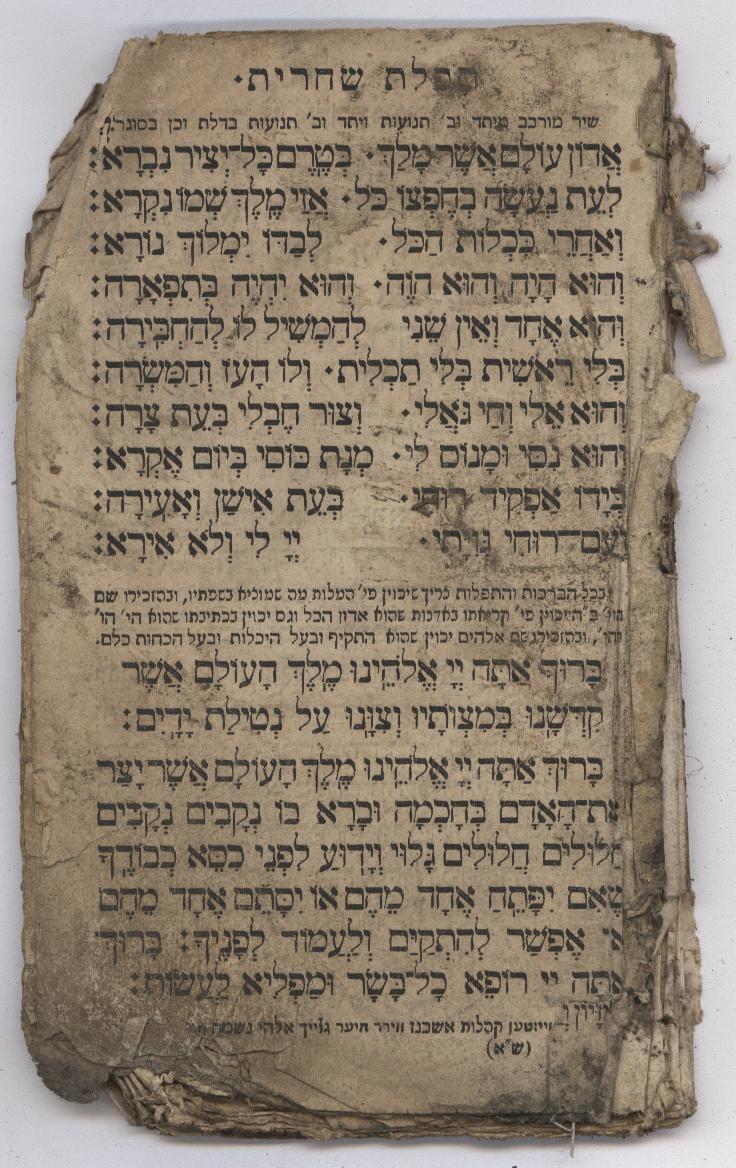 תפלת שחרית·
שיר מורכב מיתד וב׳ תנועות ויתד וב׳ תנועות בדלת וכן בסוגר׃
אֲדוֹן עוֹלָם אֲשֶׁר מָלַךְ· בְּטֶרֶם כָּל־יְצִיר נִבְרָא׃
לְעֵת נַעֲשָׂה בְחֶפְצוֹ כֹּל· אֲזַי מֶלֶךְ שְׁמוֹ נִקְרָא׃
וְאַחֲרֵי כִּכְלוֹת הַכֹּל· לְבַדּוֹ יִמְלוֹךְ נוֹרָא׃
וְהוּא הָיָה וְהוּא הֹוֶה· וְהוּא יִהְיֶה בְּתִפְאָרָה׃
וְהוּא אֶחָד וְאֵין שֵׁנִי לְהַמְשִׁיל לוֹ לְהַחְבִּירָה׃
בְּלִי רֵאשִׁית בְּלִי תַכְלִית· וְלוֹ הָעֹז וְהַמִּשְׂרָה׃
וְהוּא אֵלִי וְחַי גֹּאֲלִי· וְצוּר חֶבְלִי בְּעֵת צָרָה׃
וְהוּא נִסִּי וּמָנוֹס לִי· מְנָת כּוֹסִי בְּיוֹם אֶקְרָא׃
בְּיָדוֹ אַפְקִיד רוּחִי· בְּעֵת אִישַׁן וְאָעִירָה׃
וְעִם־רוּחִי גְּוִיָּתִי· יְיָ לִי וְלֹא אִירָא׃
בכל הברכות והתפלות צריך שיכוין פי׳ המלות מה שמוציא בשפתיו, ובהזכירו שם
הו׳ ב״ה יכוין פי׳ קריאתו באדנות שהוא אדון הכל וגם יכוין בכתיבתו שהוא הי׳ הו׳
והי׳, ובהזכירו שם אלהים יכוין שהוא התקיף ובעל היכלות ובעל הכחות כלם.
בָּרוּךְ אַתָּה יְיָ אֱלֹהֵינוּ מֶלֶךְ הָעוֹלָם אֲשֶׁר
קִדְּשָׁנוּ בְּמִצְוֹתָיו וְצִוָּנוּ עַל נְטִילַת יָדָיִם׃
בָּרוּךְ אַתָּה יְיָ אֱלֹהֵינוּ מֶלֶךְ הָעוֹלָם אֲשֶׁר יָצַר
אֶת־הָאָדָם בְּחָכְמָה וּבָרָא בוֹ נְקָבִים נְקָבִים
חֲלוּלִים חֲלוּלִים גָּלוּי וְיָדוּעַ לִפְנֵי כִסֵּא כְבוֹדֶךָ
שֶׁאִם יִפָּתֵחַ אֶחָד מֵהֶם אוֹ יִסָּתֵם אֶחָד מֵהֶם
אִי אֶפְשַׁר לְהִתְקַיֵּם וְלַעֲמוֹד לְפָנֶיךָ׃ בָּרוּךְ
אַתָּה יְיָ רוֹפֵא כָל־בָּשָׂר וּמַפְלִיא לַעֲשׂוֹת׃
קהלות אשכנז ווירד היער גלייך אלהי נשמה
(ש״א)